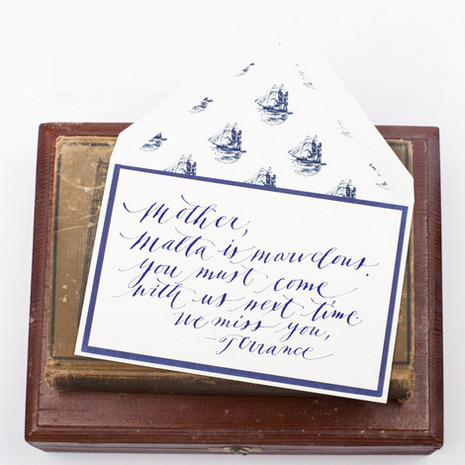 Mother,
Malta is marvelous.
you must come
with us next time.
We miss you,
-Terrance